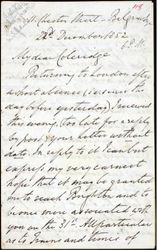 Chester Street. Belgrave
December 1852
My dear Coleridge
Returning to London after
a short absence
day before yesterday) I received
this evening, (too late for a reply
by post) your letter without
date. In reply to it I can but
express my very earnest
hope that it may be granted
me to reach Brighton and to
become more associated with
you on the 31st. All particulars
as to trains and times of